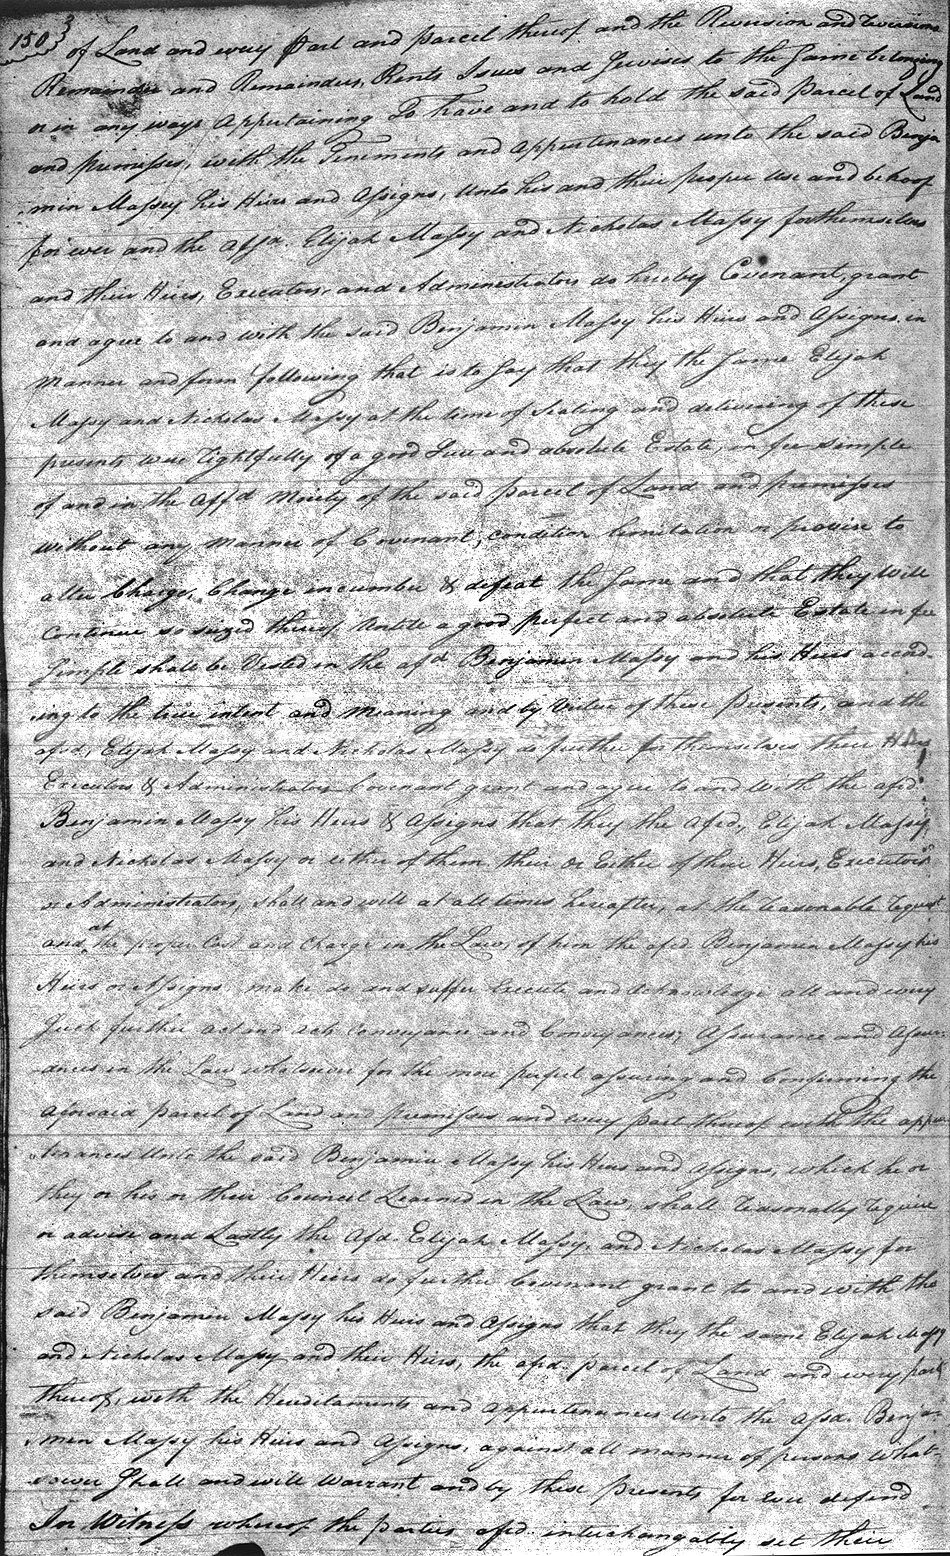 150
of Land and every Part and parcel thereof and the Reversion and Reversions
Remainder and Remainders, Rents Issues and Services to the Same belonging
or in any ways Appertaining To have and to hold the said Parcel of Land
and premisses, with the Tenements and appurtenances unto the said Benja
min Massey his Heirs and Assigns, unto his and their proper use and behoof
for ever and the Afsd. Elijah Massy and Nicholas Massy for themselves
and their Heirs, Executors, and Administrators do hereby Covenant, grant
and agree to and with the said Benjamin Massy his Heirs and Assigns in
Manner and form following that is to Say that they the Same Elijah
Massy and Nicholas Massy at the time of Sealing and delivering of these
presents were Rightfully of a good Sure and absolute Estate, in fee simple
of and in the Affd Moiety of the said parcel of Land and premisses
without any Manner of Covenant, condition limitation or proviso to
alter Charge, Change incumber & defeat the Same and that they will
Continue so seized thereof Untile a good perfect and absolute Estate in fee
Simple shall be Vested in the afd Benjamin Massy and his Heirs accord
ing to the true intent and Meaning and by Virtue of these Presents, and the
afsd, Elijah Massy and Nicholas Massey do further for themselves their Heirs
Executors & Administrators Covenant grant and agree to and with the afsd.
Benjamin Massy his Heirs & Assigns that they the Afsd, Elijah Massy
and Nicholas Massy or either of them their or Either of their Heirs, Executors
or Administrators, shall and will at all times hereafter, at the Reasonable Request
and at the proper Cost and Charge in the Law, of him the afsd Benjamin Massy his
Heirs or Assigns make do and suffer Execute and acknowledge all and every
Such further act and acts Conveyance and Conveyances, Assurance and Assur
ances in the Law whatsoever for the more perfect assuring and Confirming the
aforesaid parcel of Land and premisses and every part thereof with the appur
tenances Unto the said Benjamin Massy his Heirs and assigns, which he or
they or his or their Council Learned in the Law, shall Reasonally Require
or advise and Lastly the Afsd. Elijah Massy, and Nicholas Massy for
themselves and their Heirs do further Covenant grant to and with the
said Benjamin Massy his Heirs and assigns that they the same Elijah Massy
and Nicholas Massy and their Heirs, the afsd. parcel of Land and every part
thereof, with the Hereditaments and appurtenances Unto the afsd. Benja
men Massy his Heirs and Assigns, against all manner of persons What
soever Shall and will Warrant and by these Presents for ever defend
In Witness whereof the parties afsd. interchangably set their